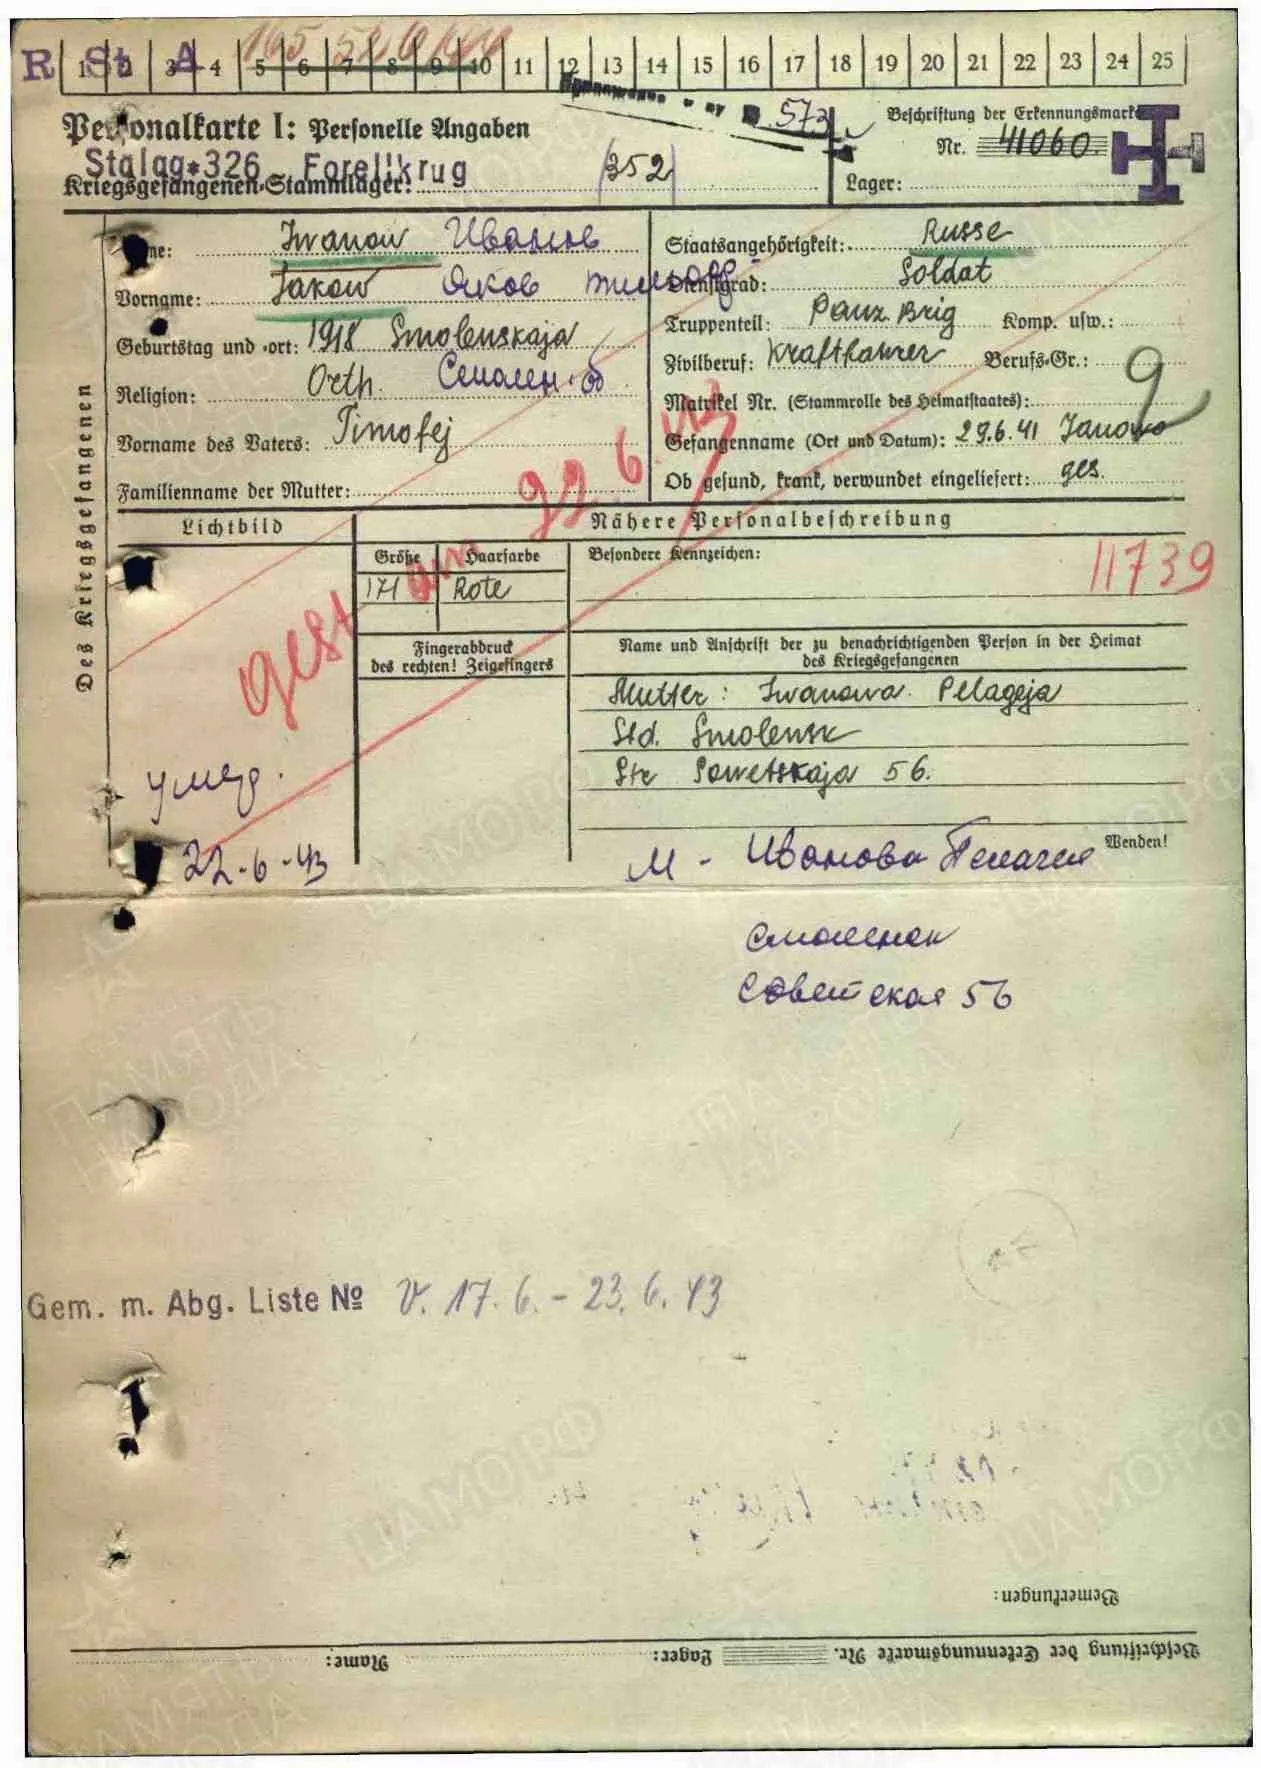 R St A
1 2 3 4 5 6 7 8 9 10 11 12 13 14 15 16 17 18 19 20 21 22 23 24 25
573
Personalkarte I: Personelle Angaben
Beschriftung der Erkennungsmarke
Nr. 41060.
Stalag 326 Forellkrug
Kriegsgefangenen-Stammlager: (352)
Lager:
Des Kriegsgefangenen
Name: Iwanow Иванов
Vorname: Jakow Яков
Geburtstag und -ort: 1918 Smolenskaja
Religion: Orth. Смолен. об
Vorname des Vaters: Timofej
Familienname der Mutter:
Staatsangehörigkeit: Russe
Dienstgrad: Soldat
Truppenteil: Panz. Brig Komp. usw.:
Zivilberuf: Kraftfahrer Berufs-Gr.: 9
Matrikel Nr. (Stammrolle des Heimatstaates):
Gefangenname (Ort und Datum): 29.6.41 Janowo
Ob gesund, krank, verwundet eingeliefert: ges.
Lichtbild
Nähere Personalbeschreibung
Größe Haarfarbe Besondere Kennzeichen:
171 Rote
11739
gest am 22.6.43
Fingerabdruck
des rechten! Zeigefingers
Name und Anschrift der zu benachrichtigenden Person in der Heimat
des Kriegsgefangenen
Mutter: Iwanowa Pelageja
Std. Smolensk
Str Sowetskaja 56.
умер.
22-6-43
Wenden!
М - Иванова Пелагея
Смоленск
Советская 56
Gem. m. Abg. Liste № v. 17.6.-23.6.43
Bemerkungen:
Beschriftung der Erkennungsmarke Nr. Lager: Name:
ПАМЯТЬ
НАРОДА
ЦАМО.РФ